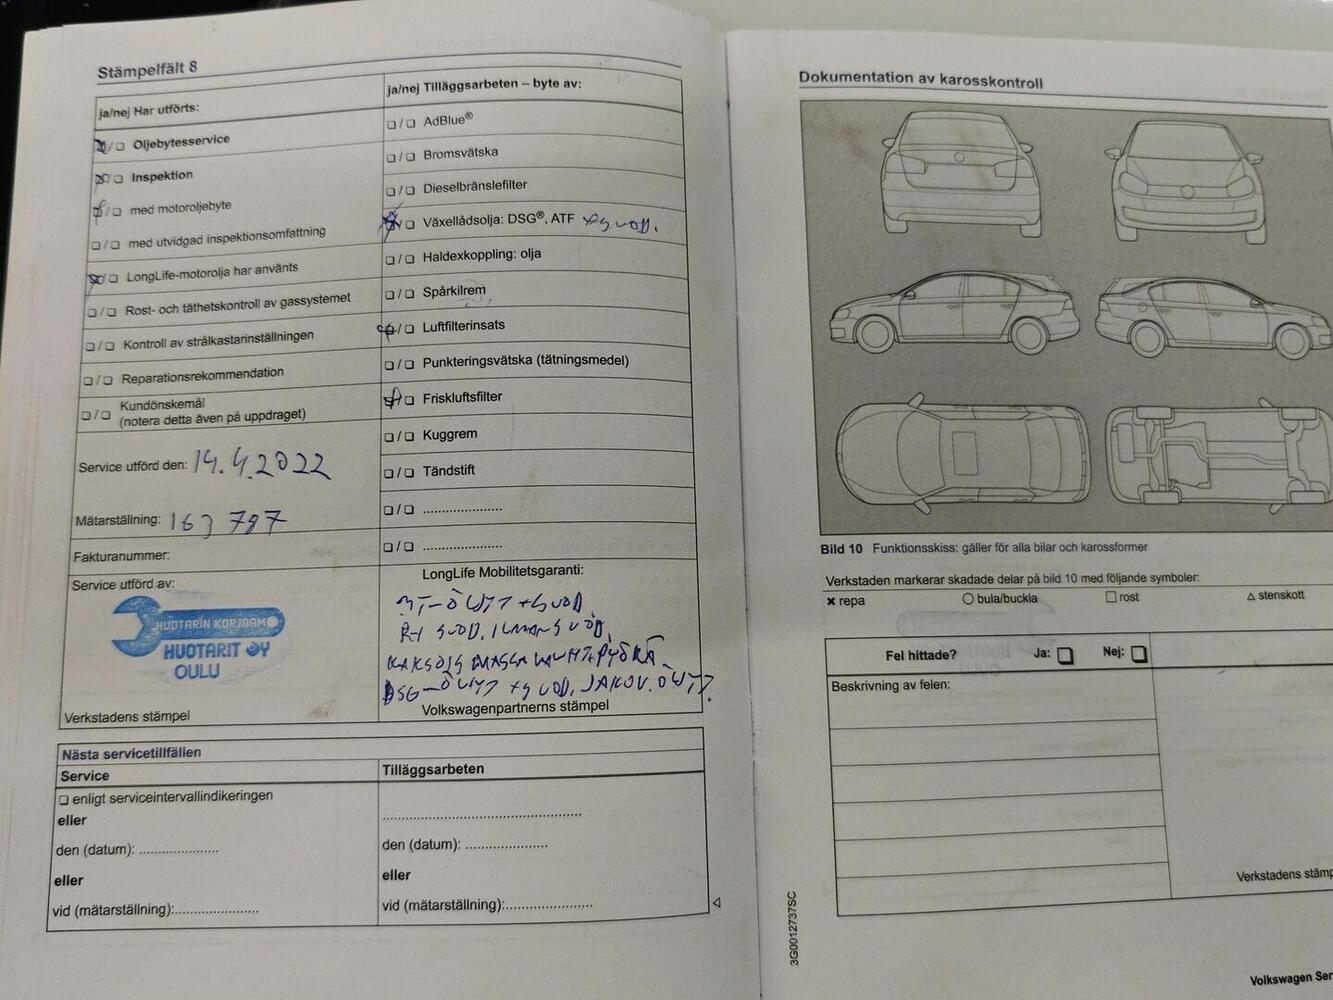 Stämpelfält 8
ja/nej Har utförts:
Oljebytesservice
Inspektion
med motoroljebyte
med utvidgad inspektionsomfattning
LongLife-motorolja har använts
Rost- och täthetskontroll av gassystemet
Kontroll av strålkastarinställningen
Reparationsrekommendation
Kundönskemål
(notera detta även på uppdraget)
Service utförd den: 14.4.2022
Mätarställning: 163 787
Fakturanummer:
Service utförd av:
HUOTARIN KORJAAMO
HUOTARIT OY
OULU
Verkstadens stämpel
ja/nej Tilläggsarbeten – byte av:
AdBlue®
Bromsvätska
Dieselbränslefilter
Växellådsolja: DSG®, ATF +SUOD.
Haldexkoppling: olja
Spårkilrem
Luftfilterinsats
Punkteringsvätska (tätningsmedel)
Friskluftsfilter
Kuggrem
Tändstift
....................
....................
LongLife Mobilitetsgaranti:
MT-ÖLJYT +SUOD.
RI SUOD. ILMANSUOD.
KAKSOISMASSA VAUHTIPYÖRÄ
DSG-ÖLJYT +SUOD. JAKOV.ÖLJYT
Volkswagenpartnerns stämpel
Nästa servicetillfällen
Service
enligt serviceintervallindikeringen
eller
den (datum): ....................
eller
vid (mätarställning):.....................
Tilläggsarbeten
..................................................
den (datum): .....................
eller
vid (mätarställning):......................
Dokumentation av karosskontroll
Bild 10 Funktionsskiss: gäller för alla bilar och karossformer
Verkstaden markerar skadade delar på bild 10 med följande symboler:
repa
bula/buckla
rost
stenskott
Fel hittade? Ja: Nej:
Beskrivning av felen:
Verkstadens stämp
3G0012737SC
Volkswagen Ser